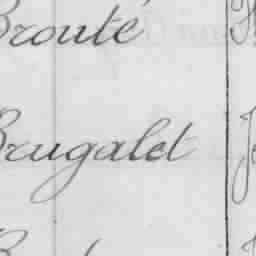 Brouté
Brugalet